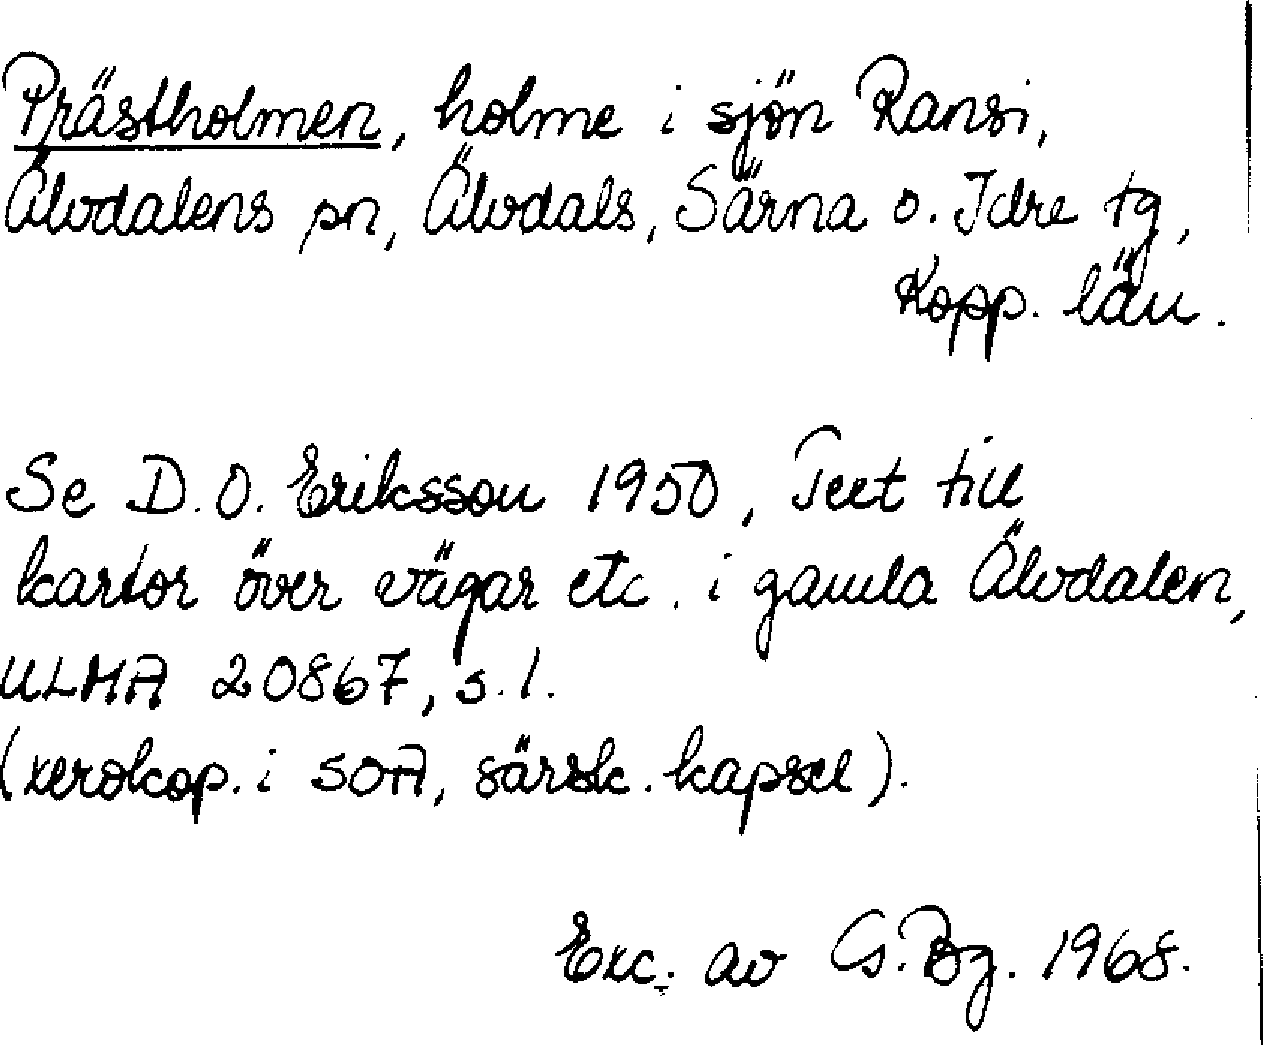 Prästholmen, holme i sjön Ransi,
Älvdalens sn, Älvdals, Särna o. Idre tg,
Kopp. län.
Se D.O. Eriksson 1950, Text till
kartor över vägar etc. i gamla Älvdalen,
ULMA 20867, s.1.
(xerokop. i SOA, särsk. kapsel).
Exc. av G.Bg. 1968.